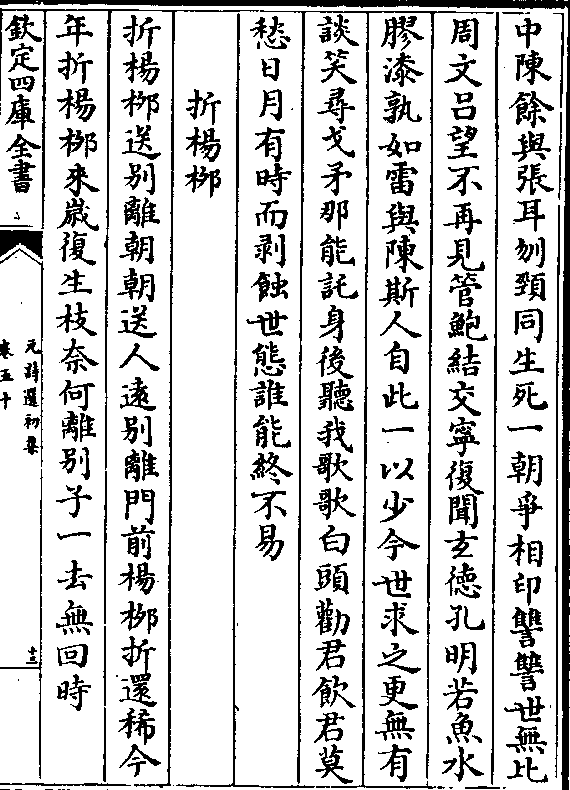 中陳餘與張耳刎頸同生死一朝爭相印讐讐世無比
周文呂望不再見管鮑結交寧復聞玄德孔明若魚水
膠漆孰如雷與陳斯人自此一以少今世求之更無有
談笑尋戈矛那能託身後聽我歌歌白頭勸君飲君莫
愁日月有時而剥蝕世態誰能終不易
折楊栁
折楊栁送别離朝朝送人遠别離門前楊栁折還稀今
年折楊栁來嵗復生枝奈何離别子一去無回時
欽定四庫全書
元詩選初集
卷五十
十三